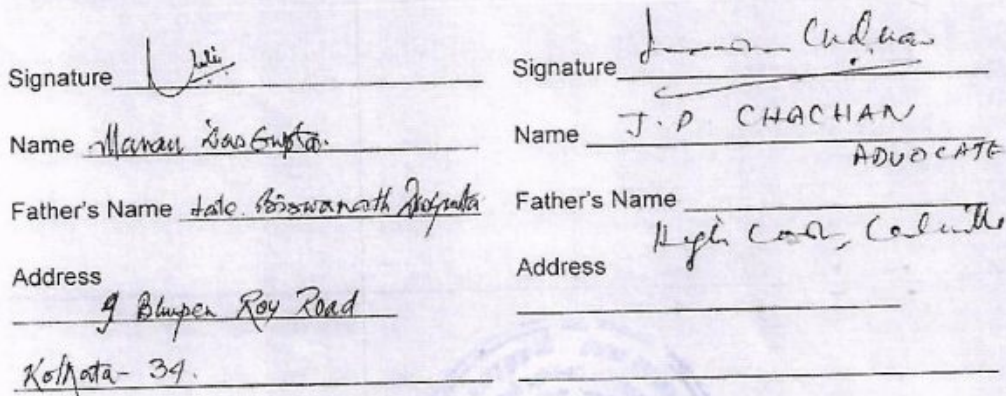 Signature
Name Manau Das Gupta.
Father's Name Late. Biswanath Dasgupta
Address
9 Bhupen Roy Road
Kolkata- 34.
Signature
Name J.P CHACHAN
ADVOCATE
Father's Name
High Court, Calcutta
Address